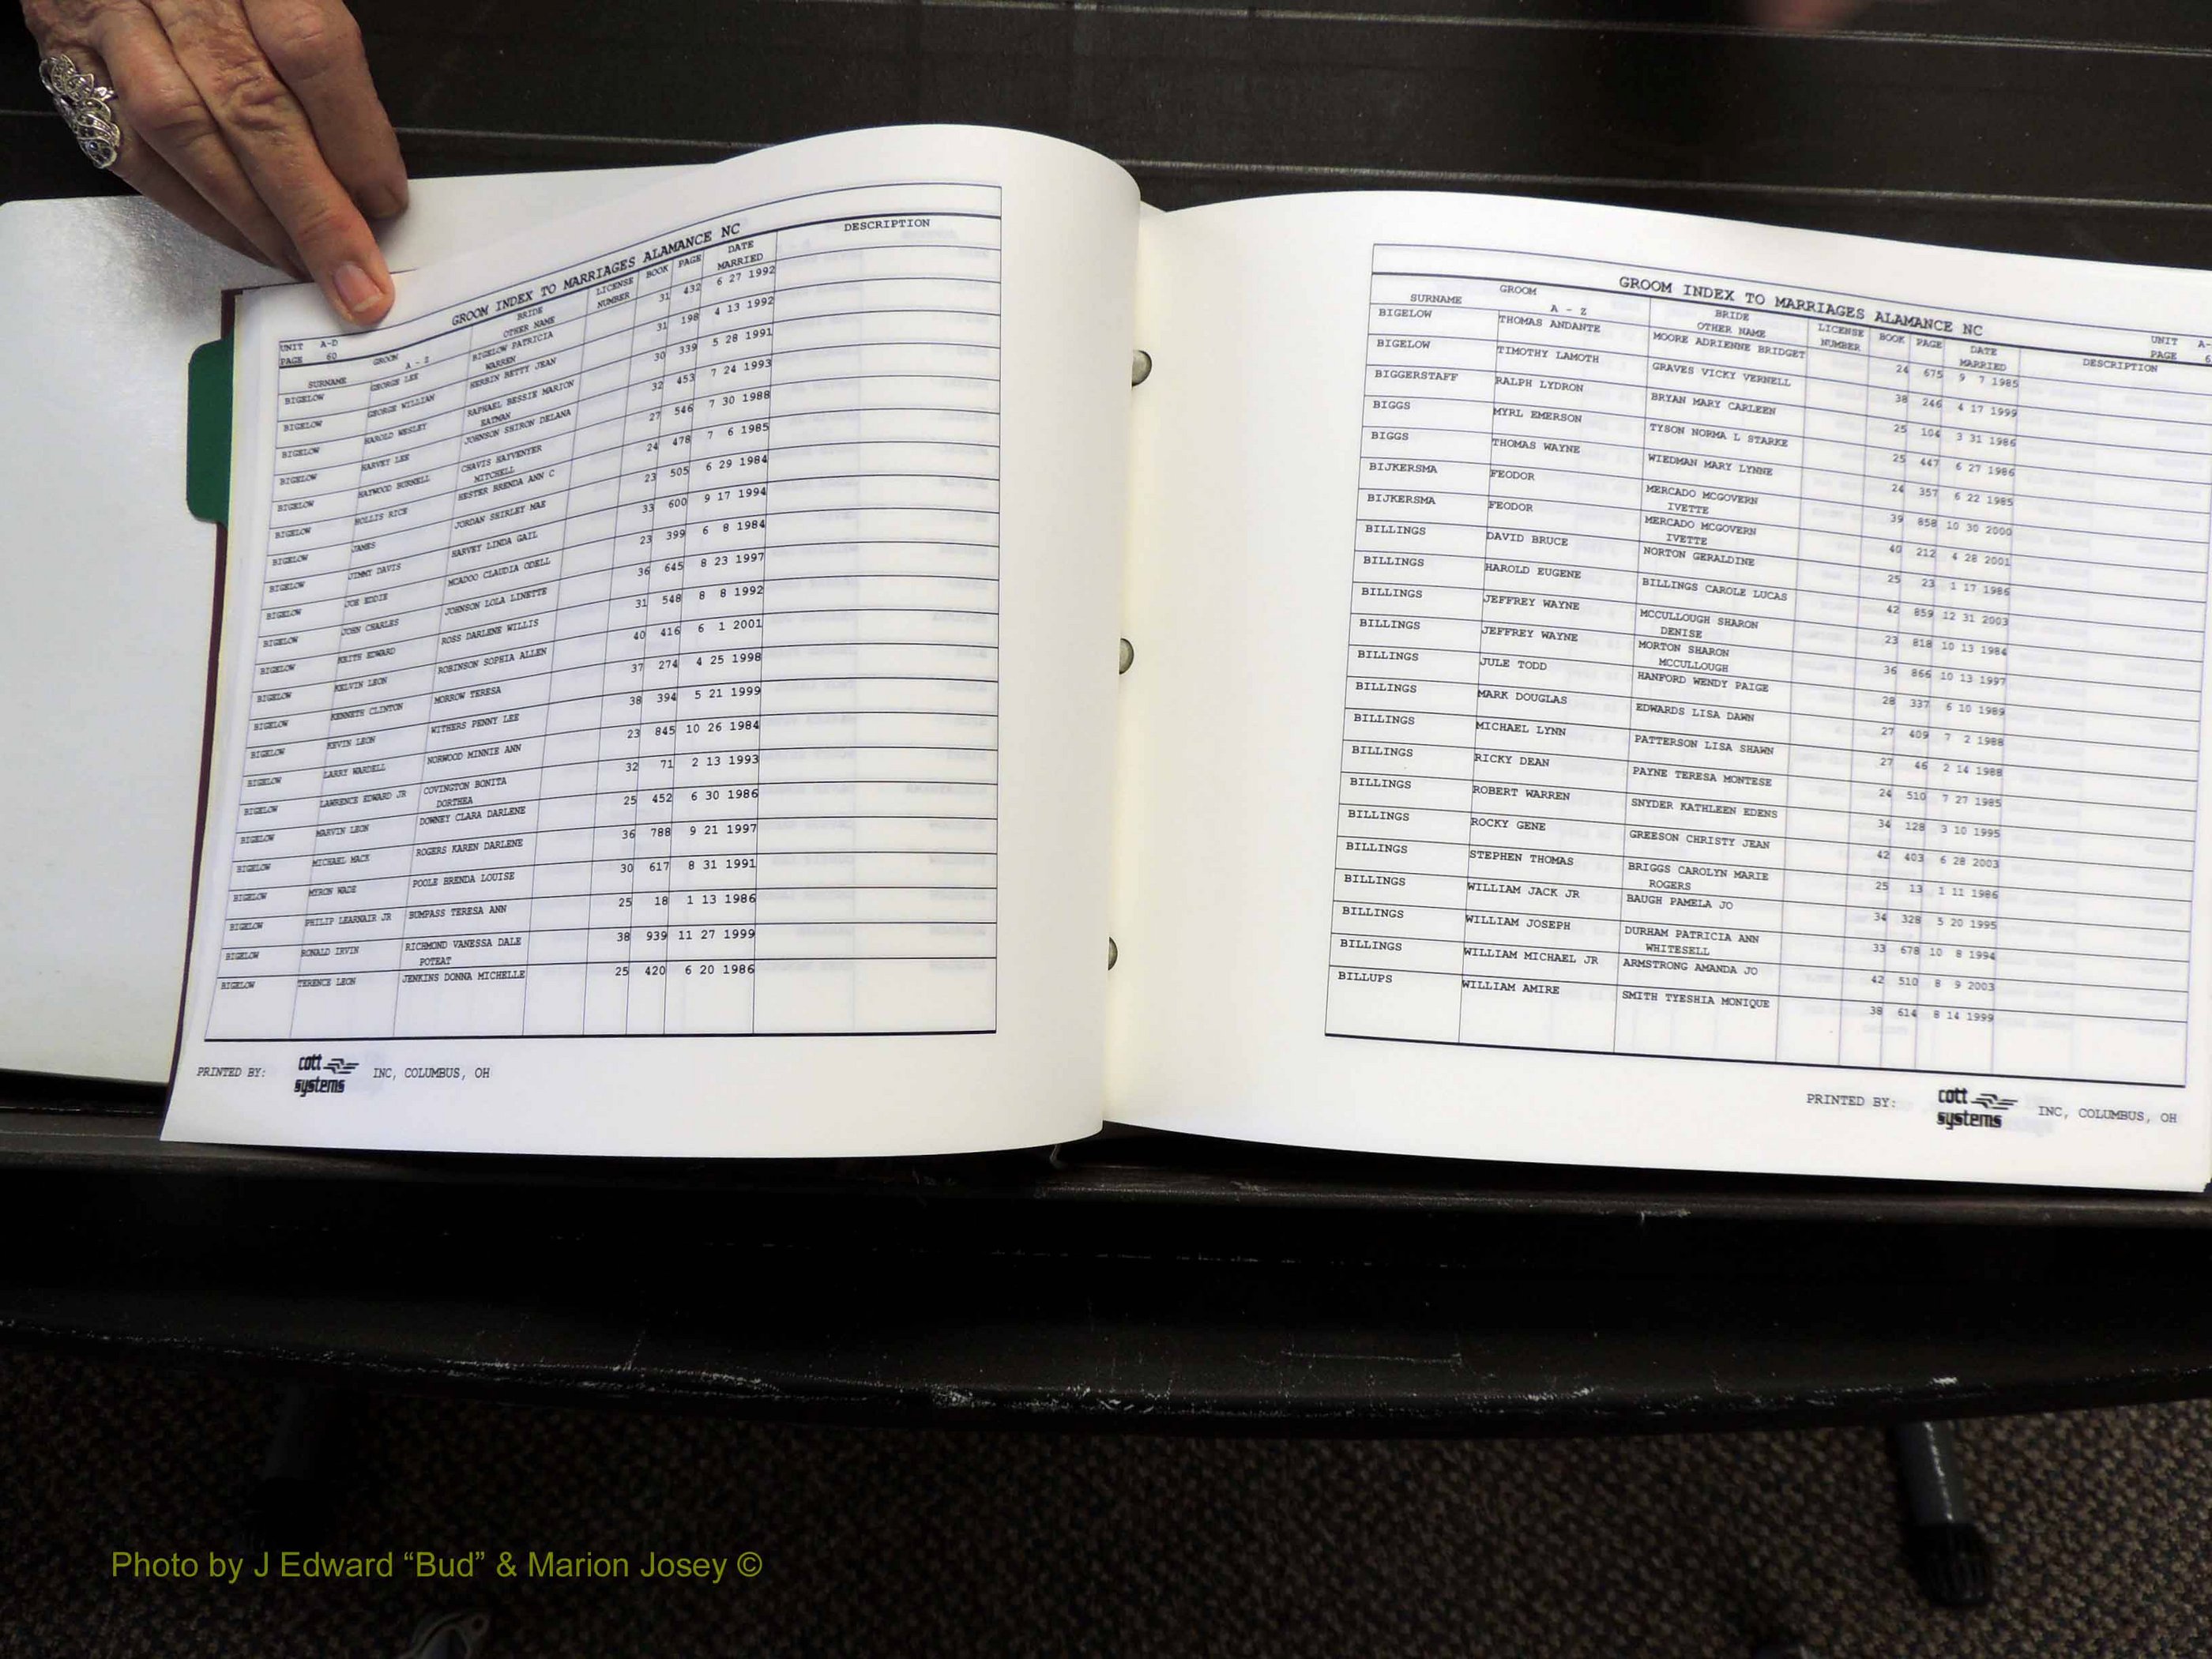 GROOM INDEX TO MARRIAGES ALAMANCE NC
UNIT A-D
PAGE 60
SURNAME GROOM A - Z BRIDE OTHER NAME LICENSE NUMBER BOOK PAGE DATE MARRIED DESCRIPTION
BIGELOW GEORGE LEE BIGELOW PATRICIA WARREN 31 432 6 27 1992
BIGELOW GEORGE WILLIAN HERBIN BETTY JEAN 31 198 4 13 1992
BIGELOW HAROLD WESLEY RAPHAEL BESSIE MARION EATMAN 30 339 5 28 1991
BIGELOW HARVEY LEE JOHNSON SHIRON DELANA 32 453 7 24 1993
BIGELOW HAYWOOD BURNELL CHAVIS HAYVENYER MITCHELL 27 546 7 30 1988
BIGELOW HOLLIS RICE HESTER BRENDA ANN C 24 478 7 6 1985
BIGELOW JAMES JORDAN SHIRLEY MAE 23 505 6 29 1984
BIGELOW JIMMY DAVIS HARVEY LINDA GAIL 33 600 9 17 1994
BIGELOW JOE EDDIE MCADOO CLAUDIA ODELL 23 399 6 8 1984
BIGELOW JOHN CHARLES JOHNSON LOLA LINETTE 36 645 8 23 1997
BIGELOW KEITH EDWARD ROSS DARLENE WILLIS 31 548 8 8 1992
BIGELOW KELVIN LEON ROBINSON SOPHIA ALLEN 40 416 6 1 2001
BIGELOW KENNETH CLINTON MORROW TERESA 37 274 4 25 1998
BIGELOW KEVIN LEON WITHERS PENNY LEE 38 394 5 21 1999
BIGELOW LARRY WARDELL NORWOOD MINNIE ANN 23 845 10 26 1984
BIGELOW LAWRENCE EDWARD JR COVINGTON BONITA DORTHEA 32 71 2 13 1993
BIGELOW MARVIN LEON DOWNEY CLARA DARLENE 25 452 6 30 1986
BIGELOW MICHAEL MACK ROGERS KAREN DARLENE 36 788 9 21 1997
BIGELOW MYRON WADE POOLE BRENDA LOUISE 30 617 8 31 1991
BIGELOW PHILIP LEARNAIR JR BUMPASS TERESA ANN 25 18 1 13 1986
BIGELOW RONALD IRVIN RICHMOND VANESSA DALE POTEAT 38 939 11 27 1999
BIGELOW TERENCE LEON JENKINS DONNA MICHELLE 25 420 6 20 1986
PRINTED BY: cott systems INC, COLUMBUS, OH
GROOM INDEX TO MARRIAGES ALAMANCE NC
UNIT A-
PAGE 6
SURNAME GROOM A - Z BRIDE OTHER NAME LICENSE NUMBER BOOK PAGE DATE MARRIED DESCRIPTION
BIGELOW THOMAS ANDANTE MOORE ADRIENNE BRIDGET 24 675 9 7 1985
BIGELOW TIMOTHY LAMOTH GRAVES VICKY VERNELL 38 246 4 17 1999
BIGGERSTAFF RALPH LYDRON BRYAN MARY CARLEEN 25 104 3 31 1986
BIGGS MYRL EMERSON TYSON NORMA L STARKE 25 447 6 27 1986
BIGGS THOMAS WAYNE WIEDMAN MARY LYNNE 24 357 6 22 1985
BIJKERSMA FEODOR MERCADO MCGOVERN IVETTE 39 858 10 30 2000
BIJKERSMA FEODOR MERCADO MCGOVERN IVETTE 40 212 4 28 2001
BILLINGS DAVID BRUCE NORTON GERALDINE 25 23 1 17 1986
BILLINGS HAROLD EUGENE BILLINGS CAROLE LUCAS 42 859 12 31 2003
BILLINGS JEFFREY WAYNE MCCULLOUGH SHARON DENISE 23 818 10 13 1984
BILLINGS JEFFREY WAYNE MORTON SHARON MCCULLOUGH 36 866 10 13 1997
BILLINGS JULE TODD HANFORD WENDY PAIGE 28 337 6 10 1989
BILLINGS MARK DOUGLAS EDWARDS LISA DAWN 27 409 7 2 1988
BILLINGS MICHAEL LYNN PATTERSON LISA SHAWN 27 46 2 14 1988
BILLINGS RICKY DEAN PAYNE TERESA MONTESE 24 510 7 27 1985
BILLINGS ROBERT WARREN SNYDER KATHLEEN EDENS 34 128 3 10 1995
BILLINGS ROCKY GENE GREESON CHRISTY JEAN 42 403 6 28 2003
BILLINGS STEPHEN THOMAS BRIGGS CAROLYN MARIE ROGERS 25 13 1 11 1986
BILLINGS WILLIAM JACK JR BAUGH PAMELA JO 34 328 5 20 1995
BILLINGS WILLIAM JOSEPH DURHAM PATRICIA ANN WHITESELL 33 678 10 8 1994
BILLINGS WILLIAM MICHAEL JR ARMSTRONG AMANDA JO 42 510 8 9 2003
BILLUPS WILLIAM AMIRE SMITH TYESHIA MONIQUE 38 614 8 14 1999
PRINTED BY: cott systems INC, COLUMBUS, OH
Photo by J Edward “Bud” & Marion Josey ©